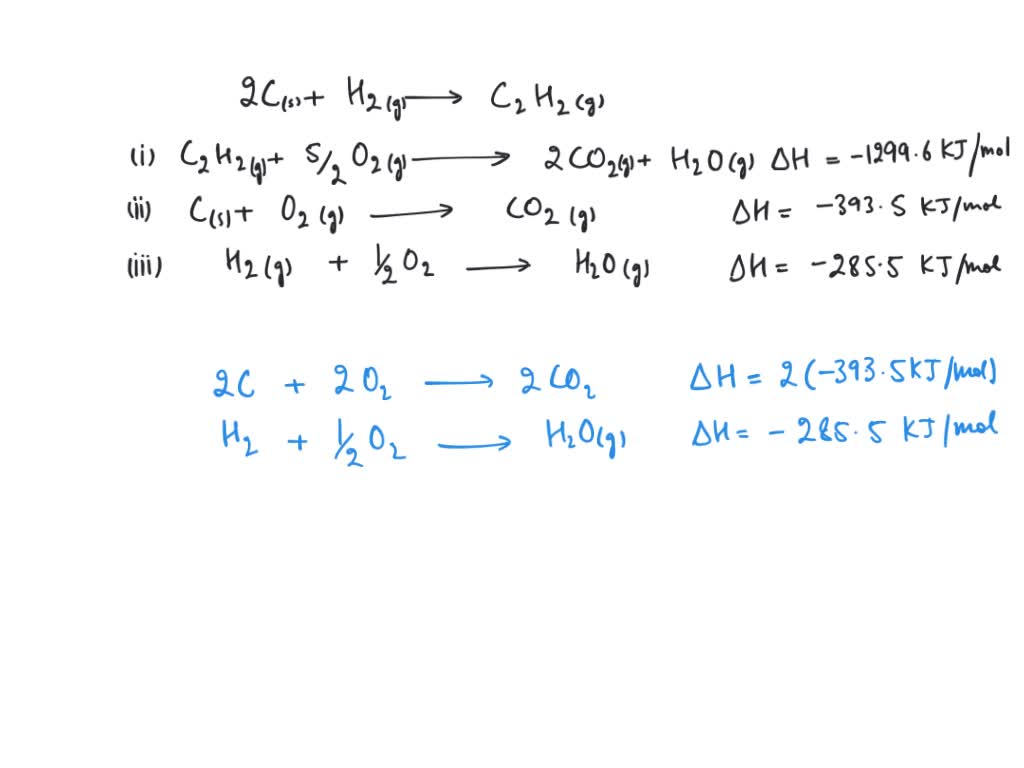 2C(s) + H₂(g) ⟶ C₂H₂(g)
(i) C₂H₂(g) + 5/2 O₂(g) ⟶ 2CO₂(g) + H₂O(g) ΔH = -1299.6 KJ/mol
(ii) C(s) + O₂(g) ⟶ CO₂(g) ΔH = -393.5 KJ/mol
(iii) H₂(g) + 1/2 O₂ ⟶ H₂O(g) ΔH = -285.5 KJ/mol
2C + 2O₂ ⟶ 2CO₂ ΔH = 2(-393.5KJ/mol)
H₂ + 1/2 O₂ ⟶ H₂O(g) ΔH = -285.5 KJ/mol